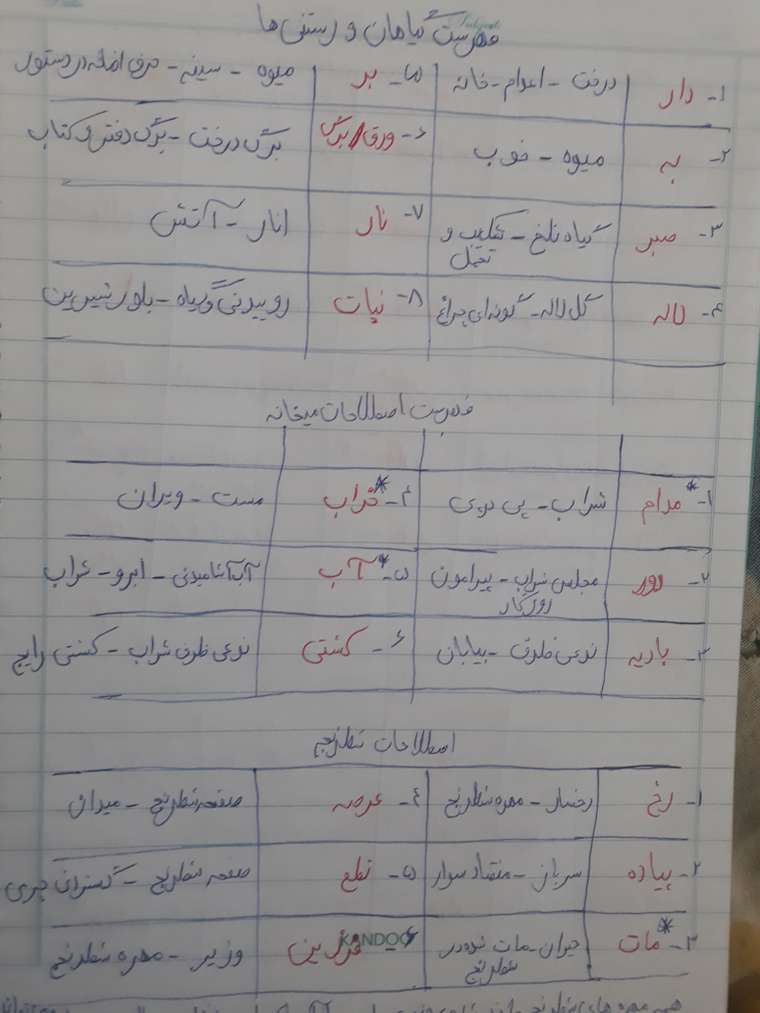 فهرست گیاهان و رستنی ها
۱- دار درخت - اعدام - خانه ۵- بر میوه - سینه - حرف اضافه در دستور
۲- به میوه - خوب ۶- ورق/برگ برگ درخت - برگ دفتر و کتاب
۳- صبر گیاه تلخ - شکیب و ۷- نار انار - آتش
تحمل
۴- لاله گل لاله - گونه‌ای چراغ ۸- نبات روییدنی و گیاه - بلور شیرین
فهرست اصطلاحات میخانه
۱- مدام* شراب - پی در پی ۴- خراب* مست - ویران
۲- دور مجلس شراب - پیرامون ۵- آب* آب آشامیدنی - ابرو - شراب
روزگار
۳- بادیه نوعی ظرف - بیابان ۶- کشتی نوعی ظرف شراب - کشتی رایج
اصطلاحات شطرنج
۱- رخ رخسار - مهره شطرنج ۴- عرصه صفحه شطرنج - میدان
۲- پیاده سرباز - متضاد سوار ۵- نطع صفحه شطرنج - گستردنی چرمی
۳- مات* حیران - مات شدن در ۶- فرزین وزیر - مهره شطرنج
شطرنج
KANDOO
همه مهره های شطرنج